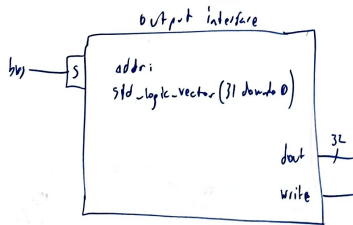 output interface
bus
S
addr:
std_logic_vector (31 downto 0)
32
dout
write